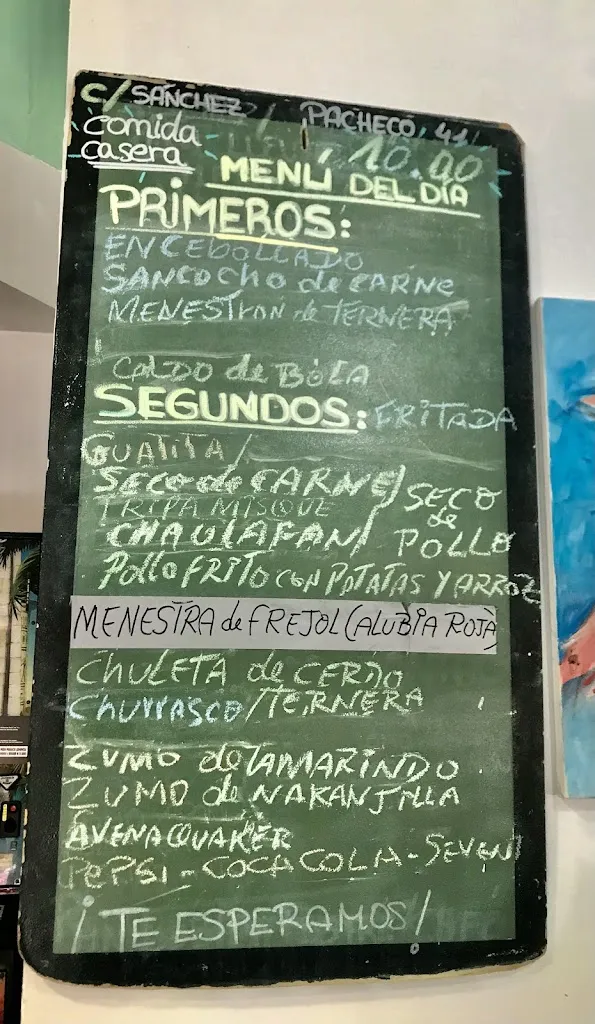 C/ SANCHEZ / PACHECO, 41
comida
casera
10.00
MENU DEL DIA
PRIMEROS:
ENCEBOLLADO
SANCOCHO de CARNE
MENESTRON de TERNERA
CALDO de BOLA
SEGUNDOS: FRITADA
GUATITA/
SECO de CARNE/ SECO de POLLO
TRIPA MISQUE
CHAULAFAN/
POLLO FRITO CON PATATAS Y ARROZ
MENESTRA de FREJOL (ALUBIA ROJA)
CHULETA de CERDO
CHURRASCO/TERNERA
ZUMO de TAMARINDO
ZUMO de NARANJILLA
AVENA QUAKER
PEPSI - COCA COLA - SEVEN
¡TE ESPERAMOS!